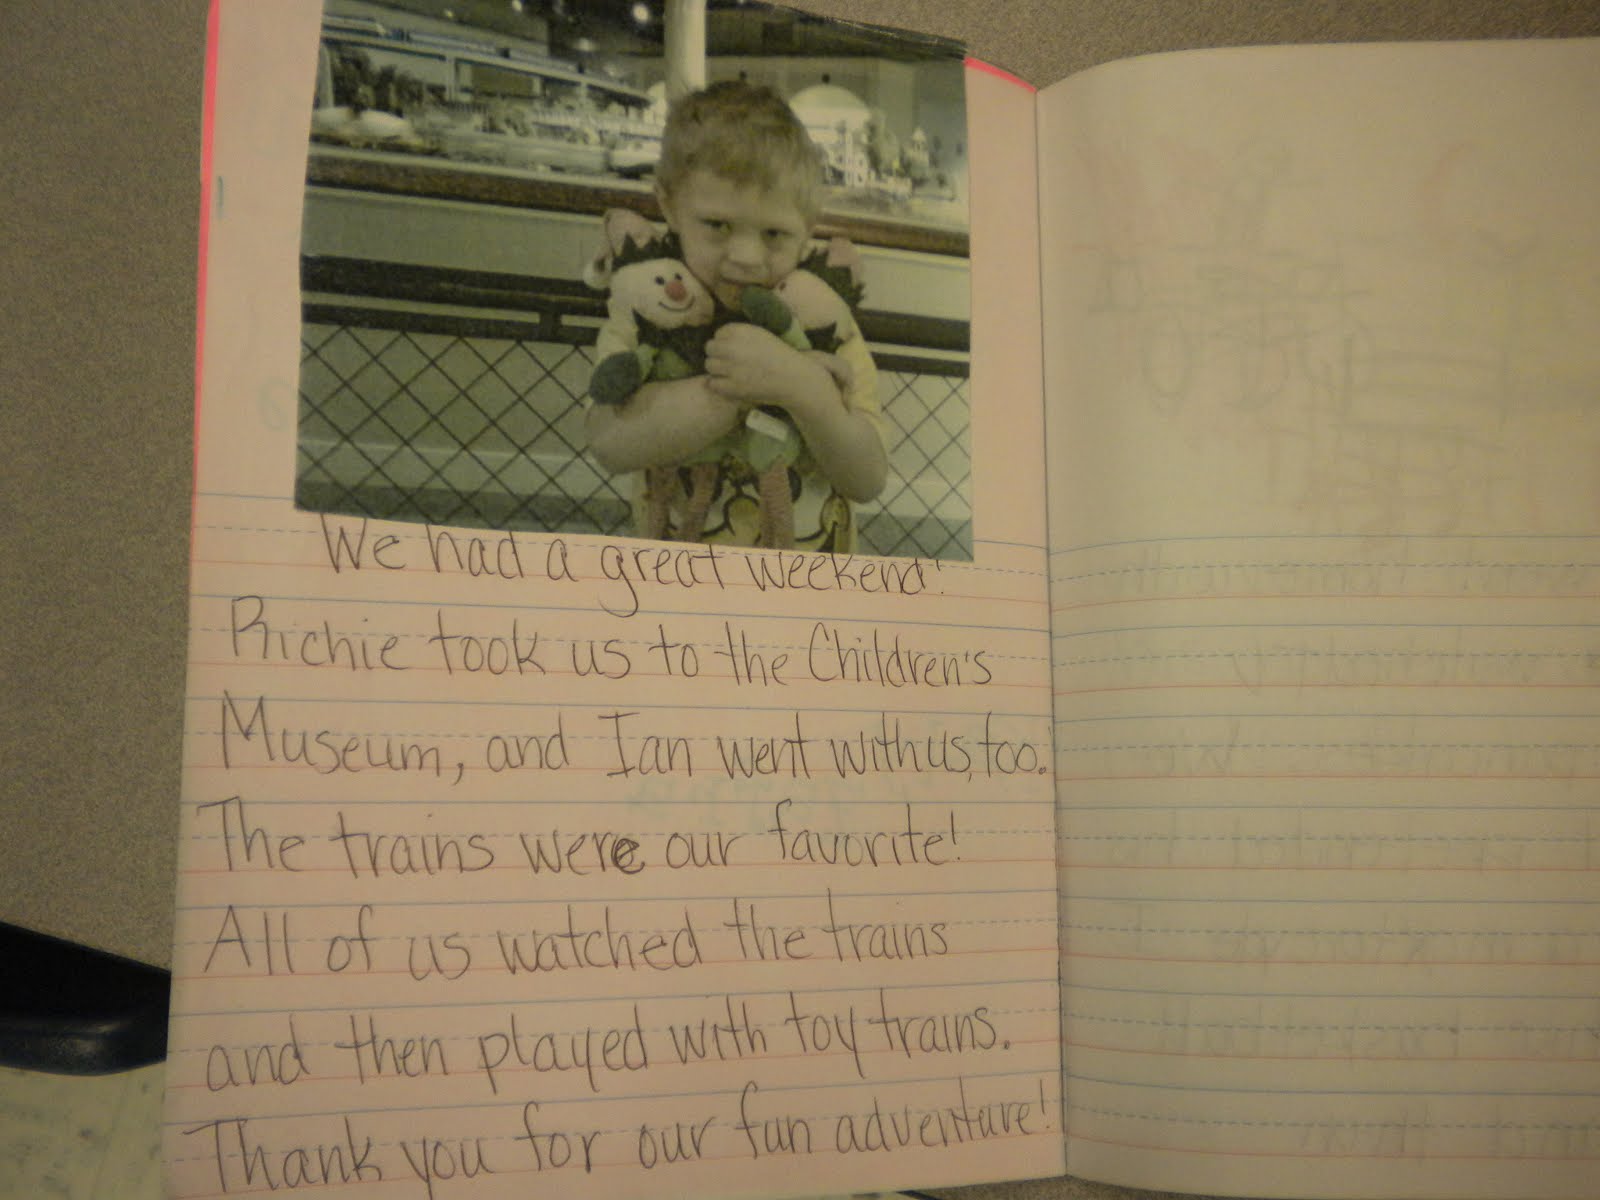 We had a great weekend!
Richie took us to the Children's
Museum, and Ian went with us, too.
The trains were our favorite!
All of us watched the trains
and then played with toy trains.
Thank you for our fun adventure!